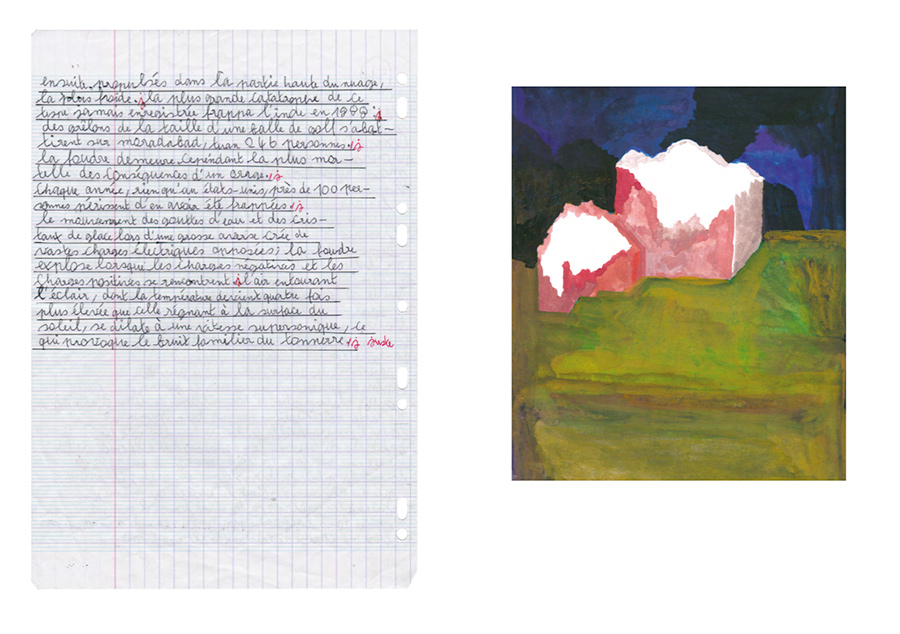 ensuite propulsés dans la partie haute du nuage,
la plus froide. la plus grande catastrophe de ce
type jamais enregistrée frappa l'inde en 1888
des grêlons de la taille d'une balle de golf s'abat-
tirent sur moradabad, tuan 246 personnes.
la foudre demeure cependant la plus mor-
telle des conséquences d'un orage.
Chaque année, rien qu'au états-unis, près de 100 per-
sonnes périssent d'en avoir été frappées
le mouvement des gouttes d'eau et des cris-
taux de glace lors d'une grosse averse crée de
vastes charges électriques opposées; la foudre
explose lorsque les charges négatives et les
Charges positives se remontrent l'air entourant
l'éclair, dont la température devient quatre fois
plus élevée que celle régnant à la surface du
soleil, se dilate à une vitesse supersonique, ce
qui provoque le bruit familier du tonnerre.